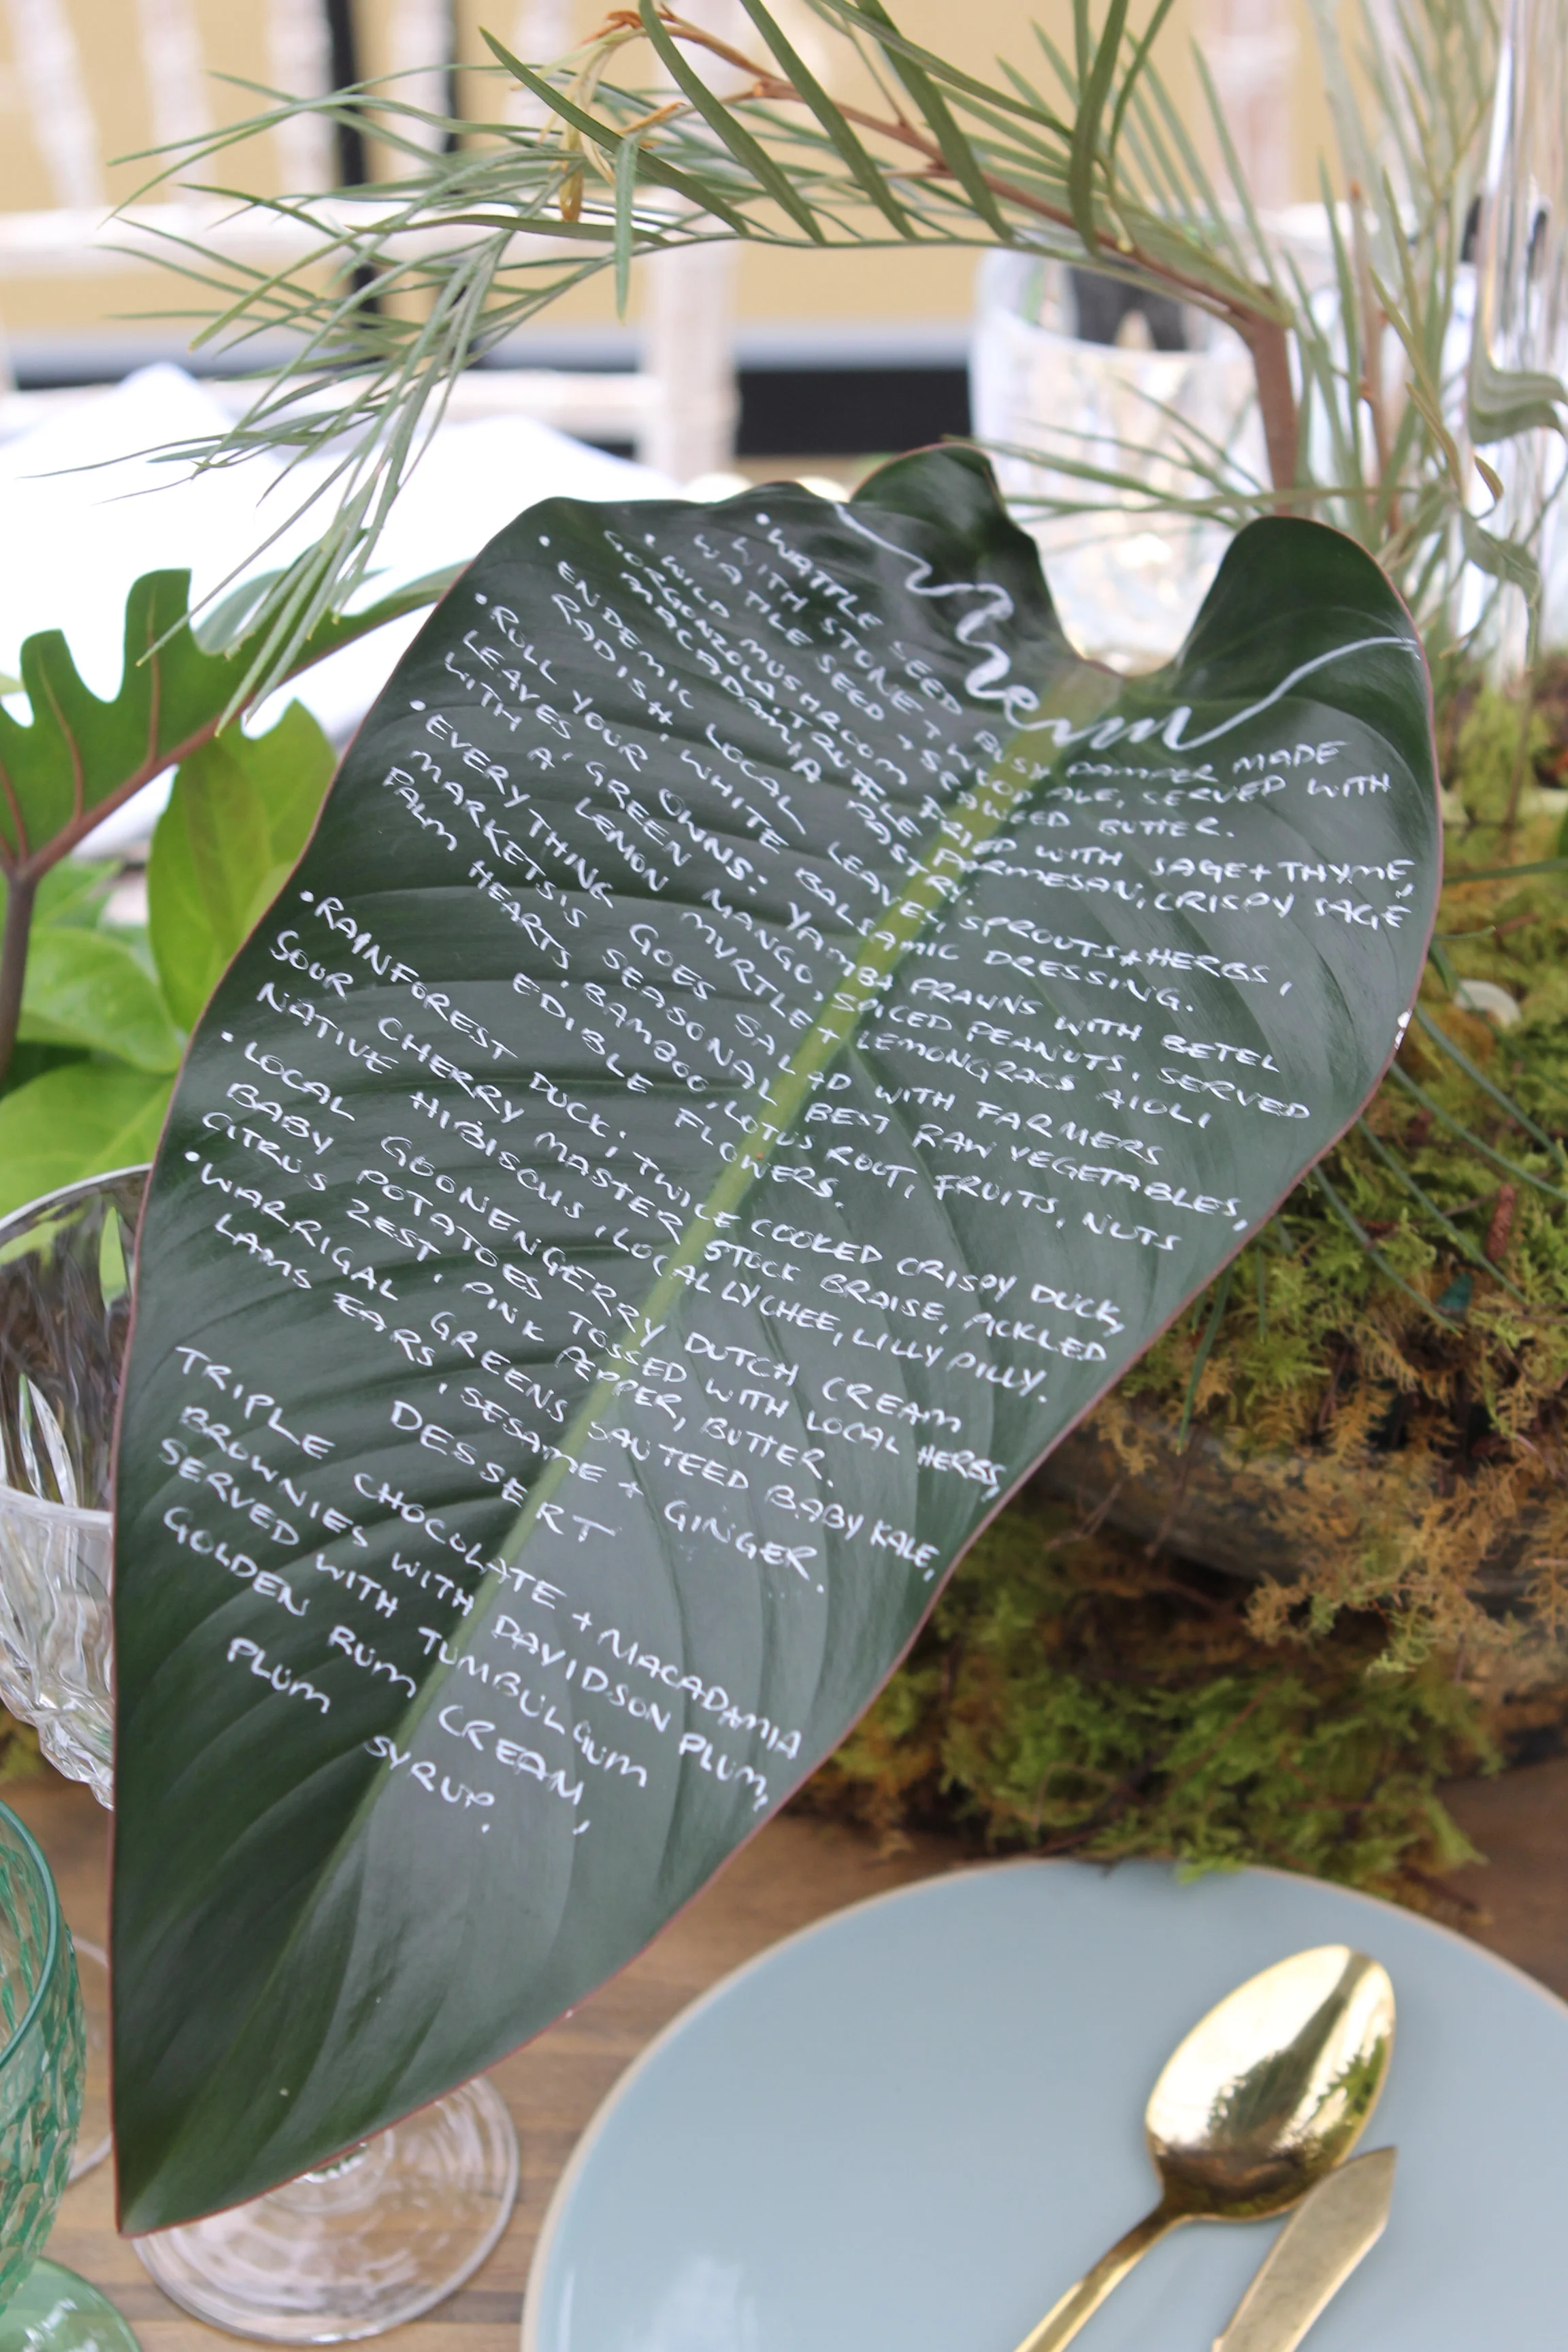 menu
• WATTLE SEED BUSH DAMPER MADE
WITH STONE + WOOD ALE, SERVED WITH
WATTLE SEED + SEAWEED BUTTER.
• WILD MUSHROOM FRIED WITH SAGE + THYME,
GORGONZOLA, TRUFFLE PARMESAN, CRISPY SAGE
MACADAMIA PASTRY.
• ENDEMIC LOCAL LEAVES, SPROUTS + HERBS,
RADISH, WHITE BALSAMIC DRESSING.
• ROLL YOUR OWNS: YAMBA PRAWNS WITH BETEL
LEAVES, GREEN MANGO, SPICED PEANUTS, SERVED
WITH A LEMON MYRTLE + LEMONGRASS AIOLI
• EVERYTHING GOES SALAD WITH FARMERS
MARKETS'S SEASONAL BEST RAW VEGETABLES,
PALM HEARTS, BAMBOO, LOTUS ROOT, FRUITS, NUTS
EDIBLE FLOWERS.
• RAINFOREST DUCK, TWICE COOKED CRISPY DUCK,
SOUR CHERRY MASTER STOCK BRAISE, PICKLED
NATIVE HIBISCUS, LOCAL LYCHEE, LILLY PILLY.
• LOCAL GOONENGERRY DUTCH CREAM
BABY POTATOES TOSSED WITH LOCAL HERBS,
CITRUS ZEST, PINK PEPPER, BUTTER.
• WARRIGAL GREENS SAUTEED BABY KALE,
LAMS EARS, SESAME + GINGER.
DESSERT
TRIPLE CHOCOLATE + MACADAMIA
BROWNIES WITH DAVIDSON PLUM,
SERVED WITH TUMBULGUM
GOLDEN RUM CREAM,
PLUM SYRUP.